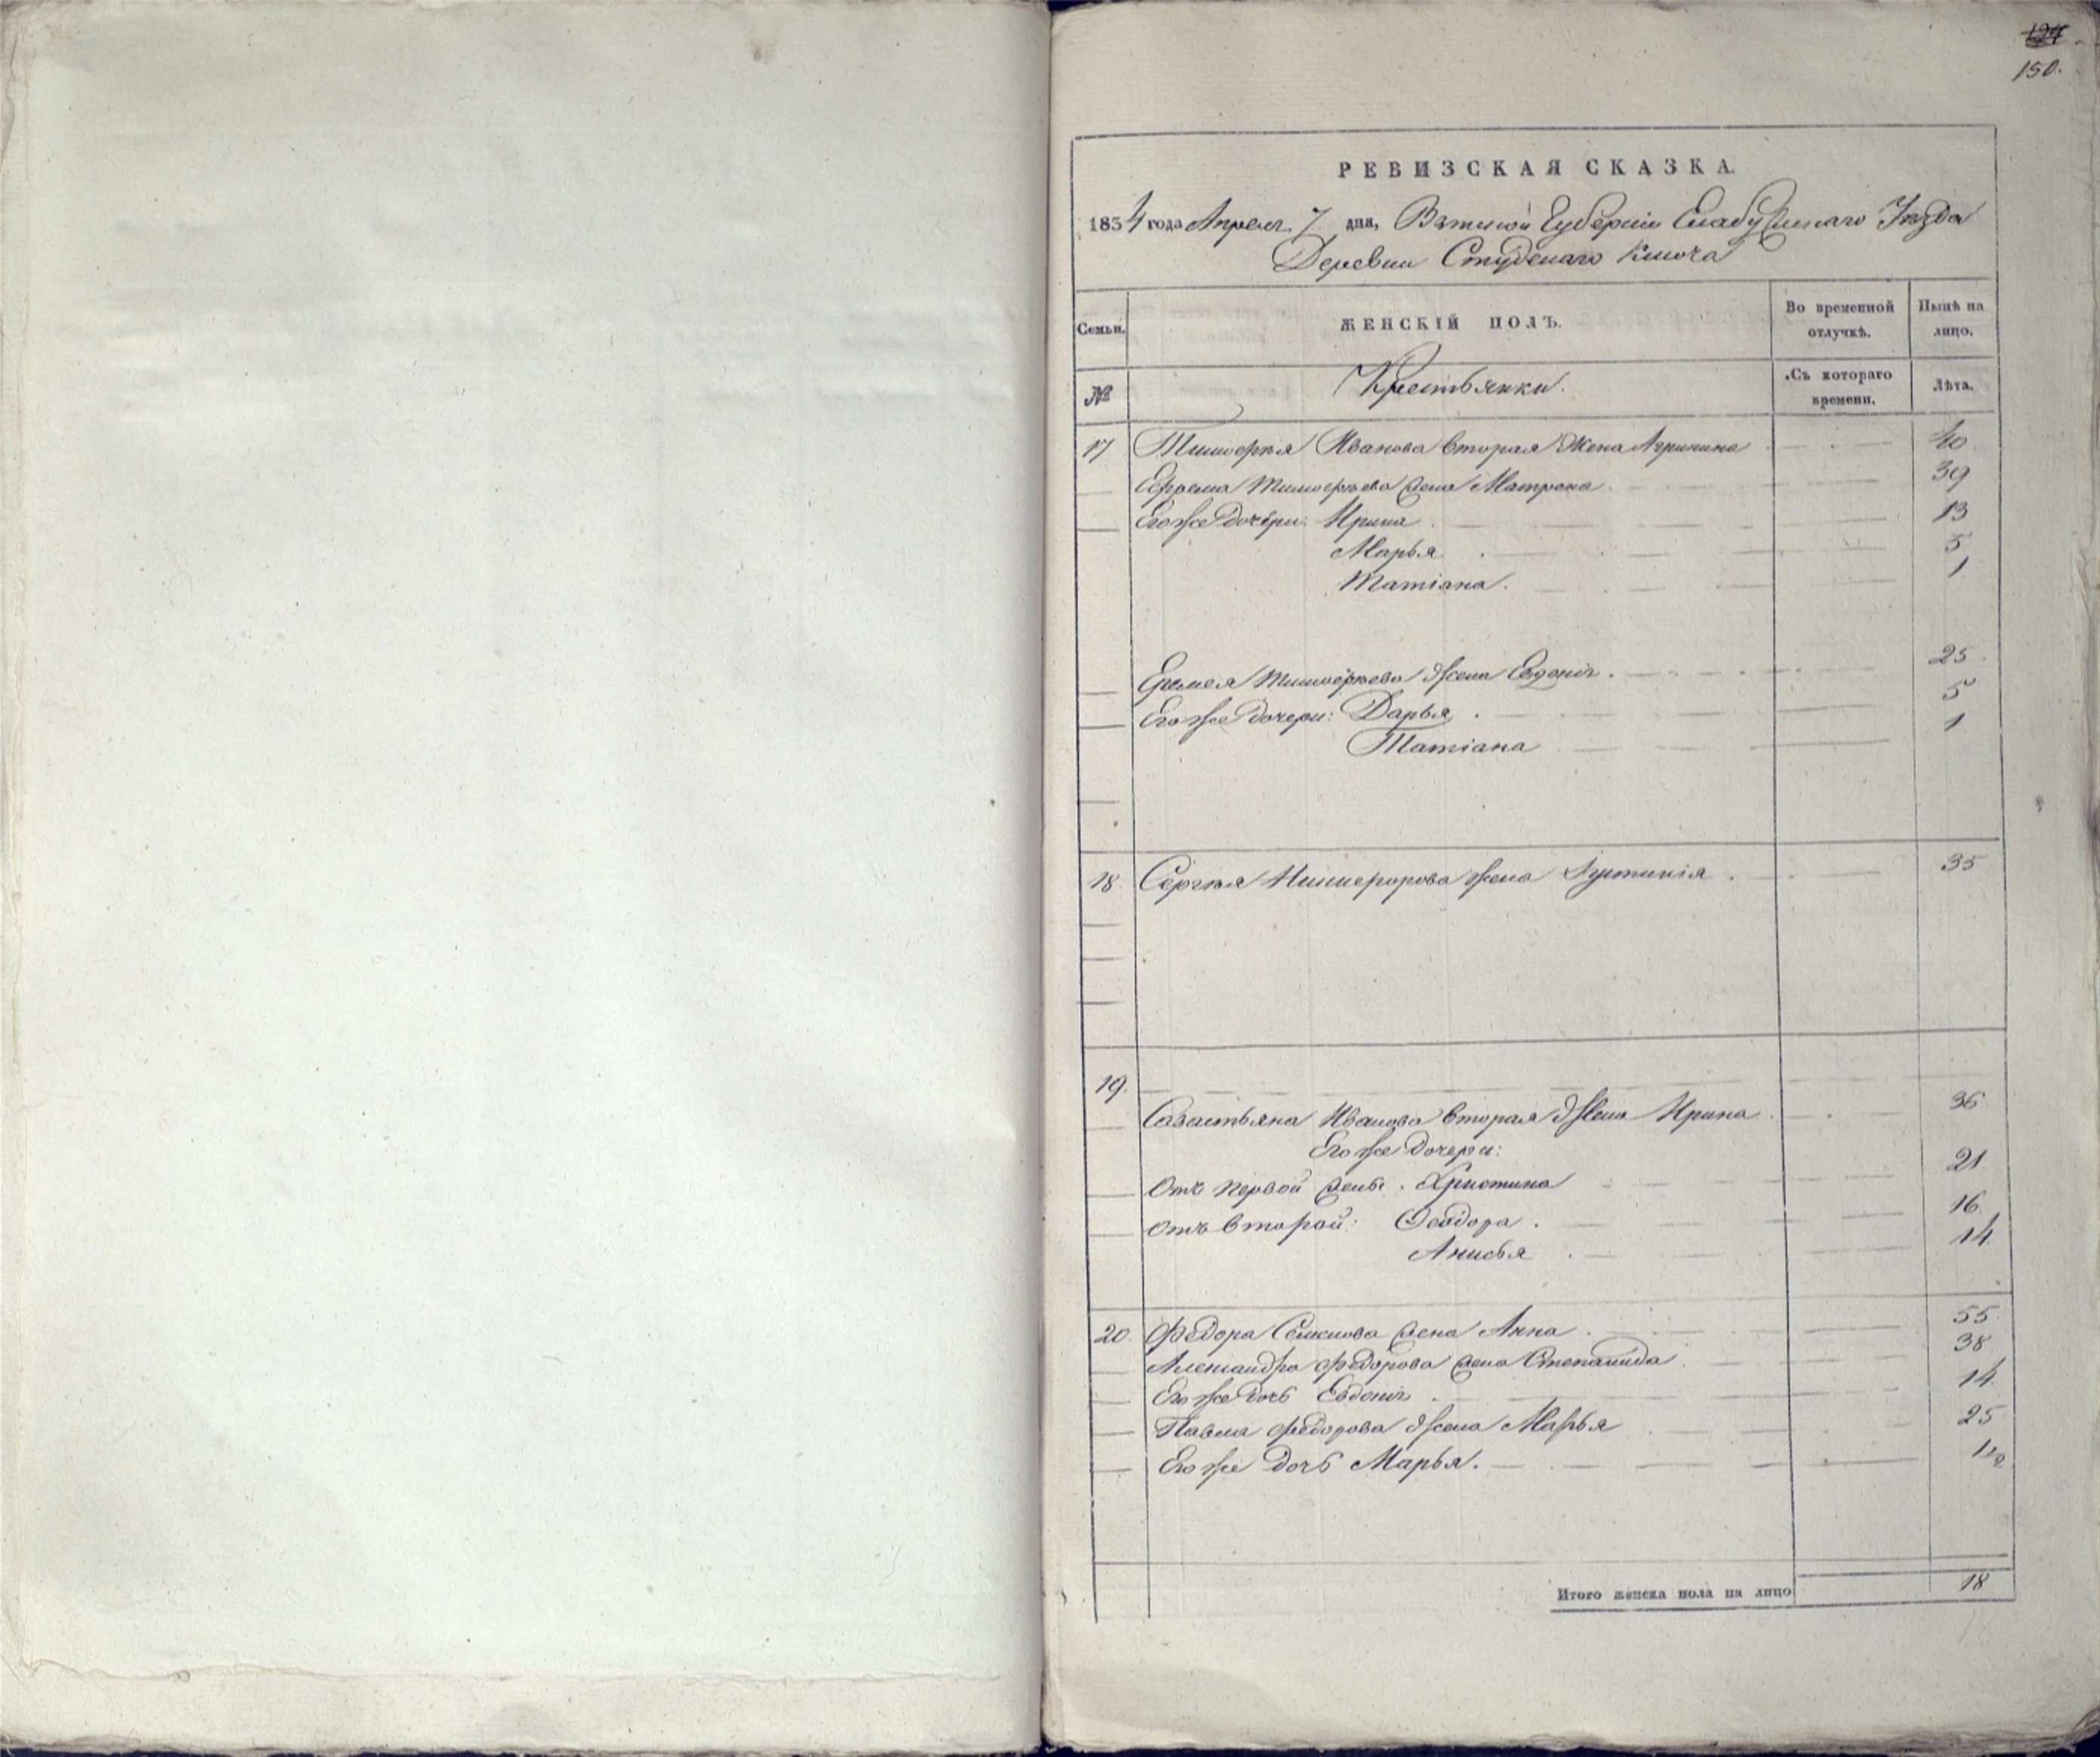 150.
РЕВИЗСКАЯ СКАЗКА.
1834 года Апреля 7 дня, Вятской Губернiи Елабужскаго Уѣзда
Деревни Студенаго Ключа
Семьи. ЖЕНСКIЙ ПОЛЪ. Во временной отлучкѣ. Нынѣ на лицо.
№ Крестьянки. Съ котораго времени. Лѣта.
17 Тимофѣя Иванова вторая Жена Агрипина 40
Ефрема Тимофѣева жена Матрена 39
Его же дочери: Ирина 13
Марья 5
Татiана 1
Еремея Тимофѣева жена Евдокiя 25
Его же дочери: Дарья 5
Татiана 1
18 Сергѣя Никифорова жена Устинiя 35
19.
Савастьяна Иванова вторая Жена Ирина 36
Его же дочери:
Отъ первой жены Христина 21
отъ второй: Ѳеодора 16
Анисья 14
20 Федора Семенова жена Анна 55
Александра Федорова жена Степанида 38
Его же дочь Евдокiя 14
Павла Федорова Жена Марья 25
Его же дочь Марья. 1/2
Итого женска пола на лицо 18